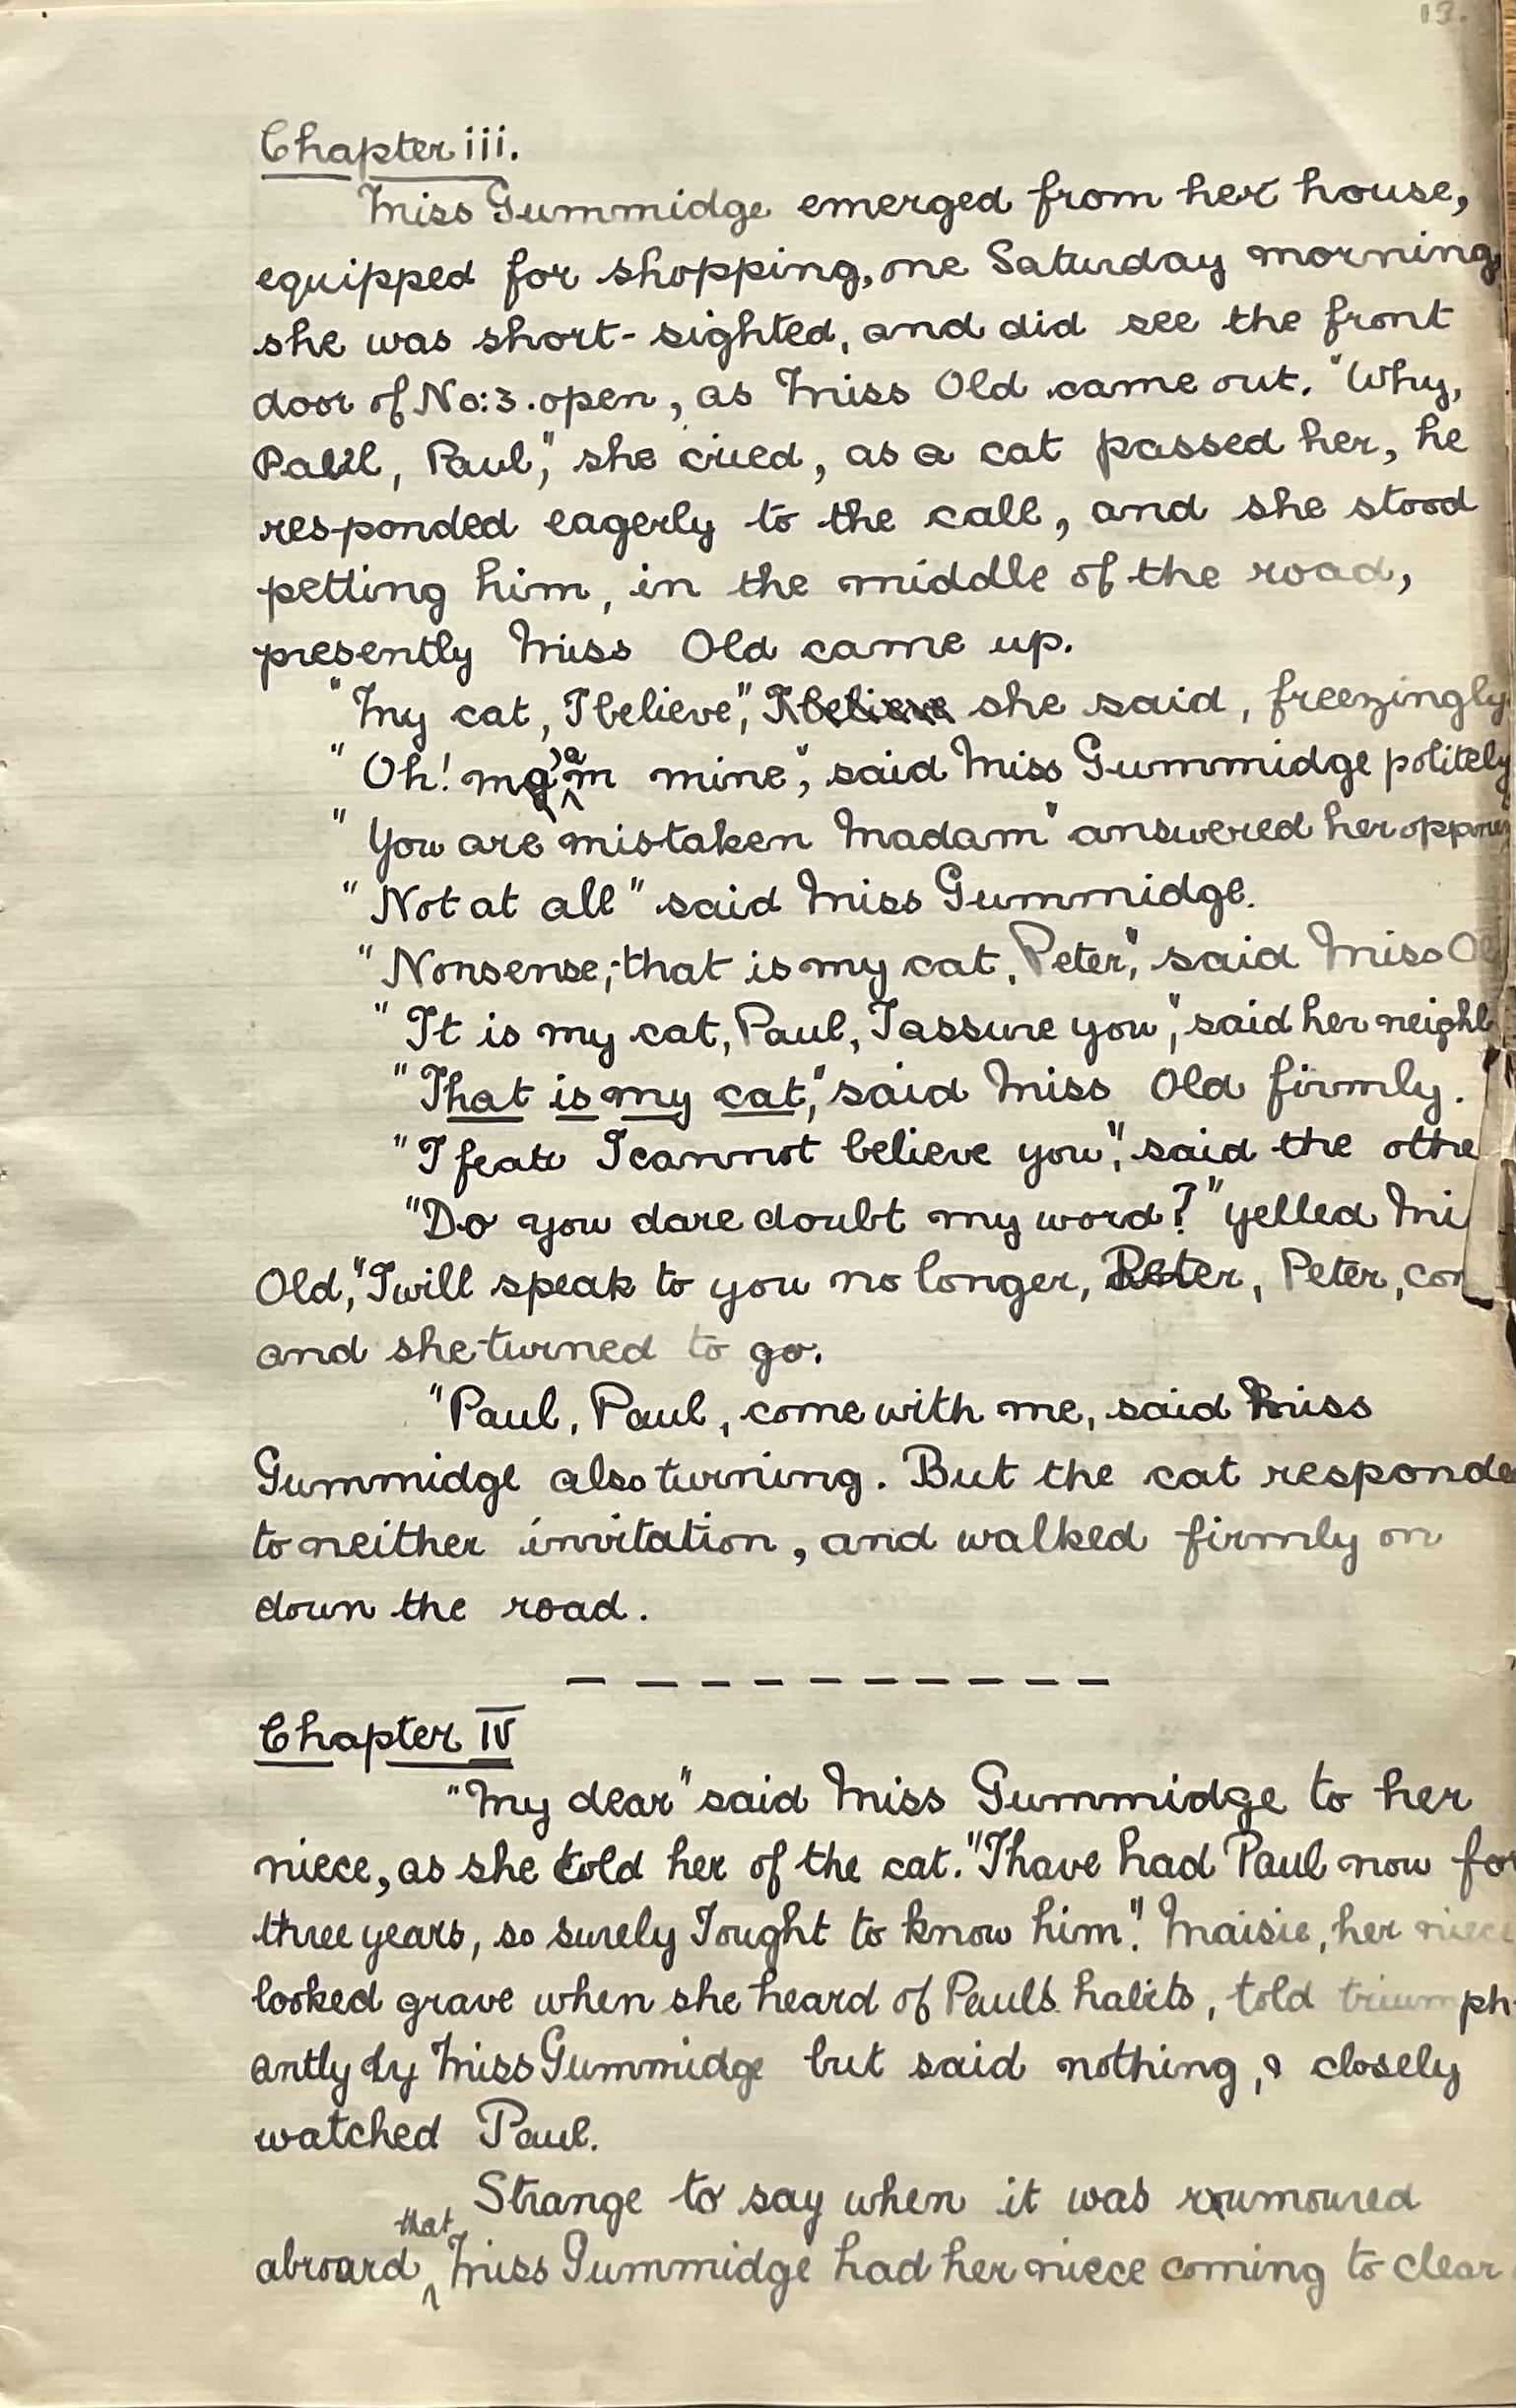 13.
Chapter iii.
Miss Gummidge emerged from her house,
equipped for shopping, one Saturday morning,
she was short-sighted, and did see the front
door of No:3. open, as Miss Old came out. "Why,
Paul, Paul," she cried, as a cat passed her, he
responded eagerly to the call, and she stood
petting him, in the middle of the road,
presently Miss Old came up.
"My cat, I believe", I believe she said, freezingly
"Oh! ma'am mine", said Miss Gummidge politely
"You are mistaken Madam" answered her
"Not at all" said Miss Gummidge.
"Nonsense; that is my cat, Peter", said Miss Ol
"It is my cat, Paul, I assure you", said her neighb
"That is my cat", said Miss Old firmly.
"I fear I cannot believe you", said the othe
"Do you dare doubt my word?" yelled Mi
Old, "I will speak to you no longer, Peter, Peter, com
and she turned to go.
"Paul, Paul, come with me, said Miss
Gummidge also turning. But the cat responde
to neither invitation, and walked firmly on
down the road.
Chapter IV
"My dear" said Miss Gummidge to her
niece, as she told her of the cat. "I have had Paul now for
three years, so surely I ought to know him". Maisie, her niece
looked grave when she heard of Paul's habits, told triumph-
antly by Miss Gummidge but said nothing, & closely
watched Paul.
Strange to say when it was rumoured
abroard that Miss Gummidge had her niece coming to clear